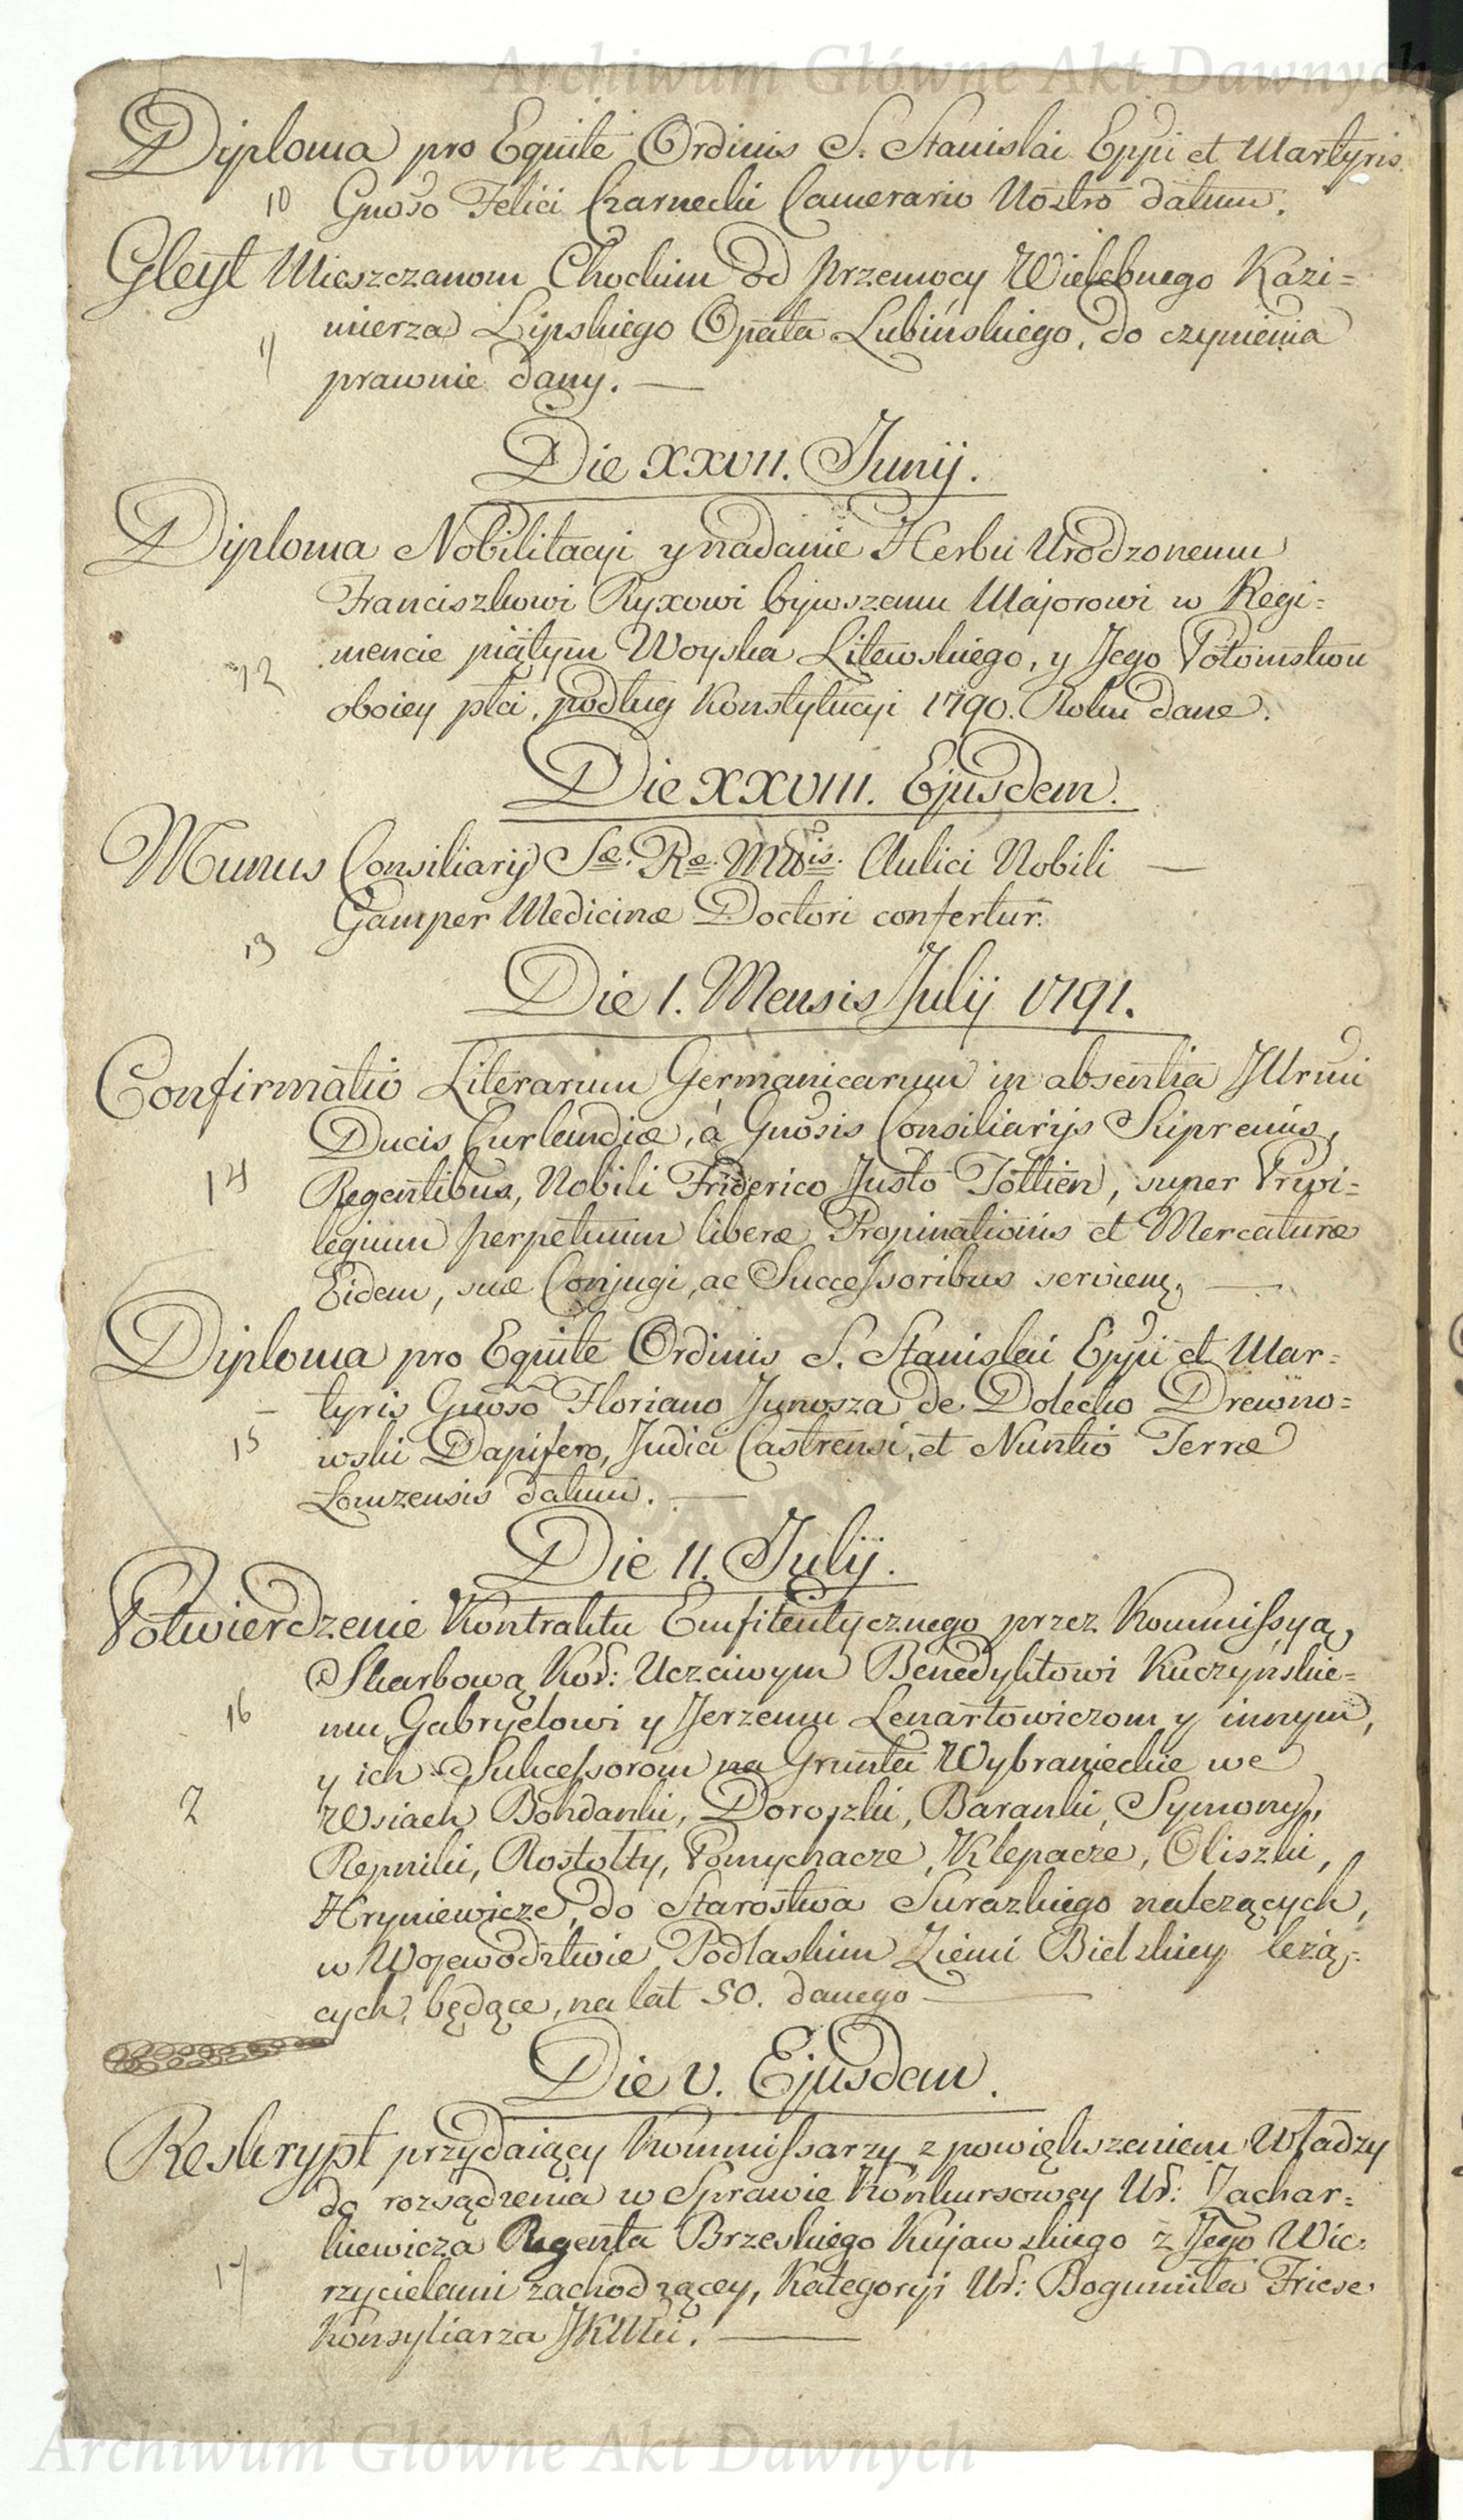 Archiwum Główne Akt Dawnych
Diploma pro Equite Ordinis S. Stanislai Eppi et Martyris
10 Gnoso Felici Czarnecki Camerario Nostro datum.
Gleyt Mieszczanom Chockim od przemocy Wielebnego Kazi=
mierza Lipskiego Opata Lubińskiego, do czynienia
11
prawnie dany. —
Die XXVII. Junij.
Diploma Nobilitacyi y nadanie Herbu Urodzonemu
Franciszkowi Ryxowi bywszemu Majorowi w Regi=
mencie piątym Woyska Litewskiego, y Jego Potomstwu
12
oboiey płci, podług Konstytucyi 1790. Roku dane.
Die XXVIII. Ejusdem.
Munus Consiliarij Sæ. Ræ. Mttis. Aulici Nobili —
Gamper Medicinæ Doctori confertur.
13
Die 1. Mensis Julij 1791.
Confirmatio Literarum Germanicarum in absentia Illrmi
Ducis Curlandiæ, à Gnosis Consiliarijs Supremis,
14 Regentibus, Nobili Friderico Justo Tottien, super Privi=
legium perpetuum liberæ Propinationis et Mercaturæ
Eidem, suæ Conjugi, ac Successoribus serviens, —
Diploma pro Equite Ordinis S. Stanislai Eppi et Mar=
tyris Gnoso Floriano Junosza de Dolecko Drewno=
15 wski Dapifero, Judici Castrensi, et Nuntio Terræ
Lomzensis datum. —
Die II. Julij.
Potwierdzenie Kontraktu Emfiteutycznego przez Kommissyą
Skarbową Kor: Uczciwym Benedyktowi Kuczyńskie=
16 mu, Gabryelowi y Jerzemu Lenartowiczom y innym,
y ich Sukcessorom na Grunta Wybranieckie we
2 Wsiach Bohdanki, Doroszki, Baranki, Symony,
Repniki, Rostołty, Pomychacze, Klepacze, Oliszki,
Hryniewicze, do Starostwa Surazkiego należących,
w Wojewodztwie Podlaskim Ziemi Bielskiey leżą=
cych, będące, na lat 50. danego —
Die V. Ejusdem.
Reskrypt przydaiący Kommissarzy z powiększeniem Władzy
do rozsądzenia w Sprawie Konkursowey Ur: Zachar=
kiewicza Regenta Brzeskiego Kujawskiego z Jego Wie=
17
rzycielami zachodzącey, Kategoryi Ur: Bogumiła Friese
Konsyliarza JKMci. —
Archiwum Główne Akt Dawnych